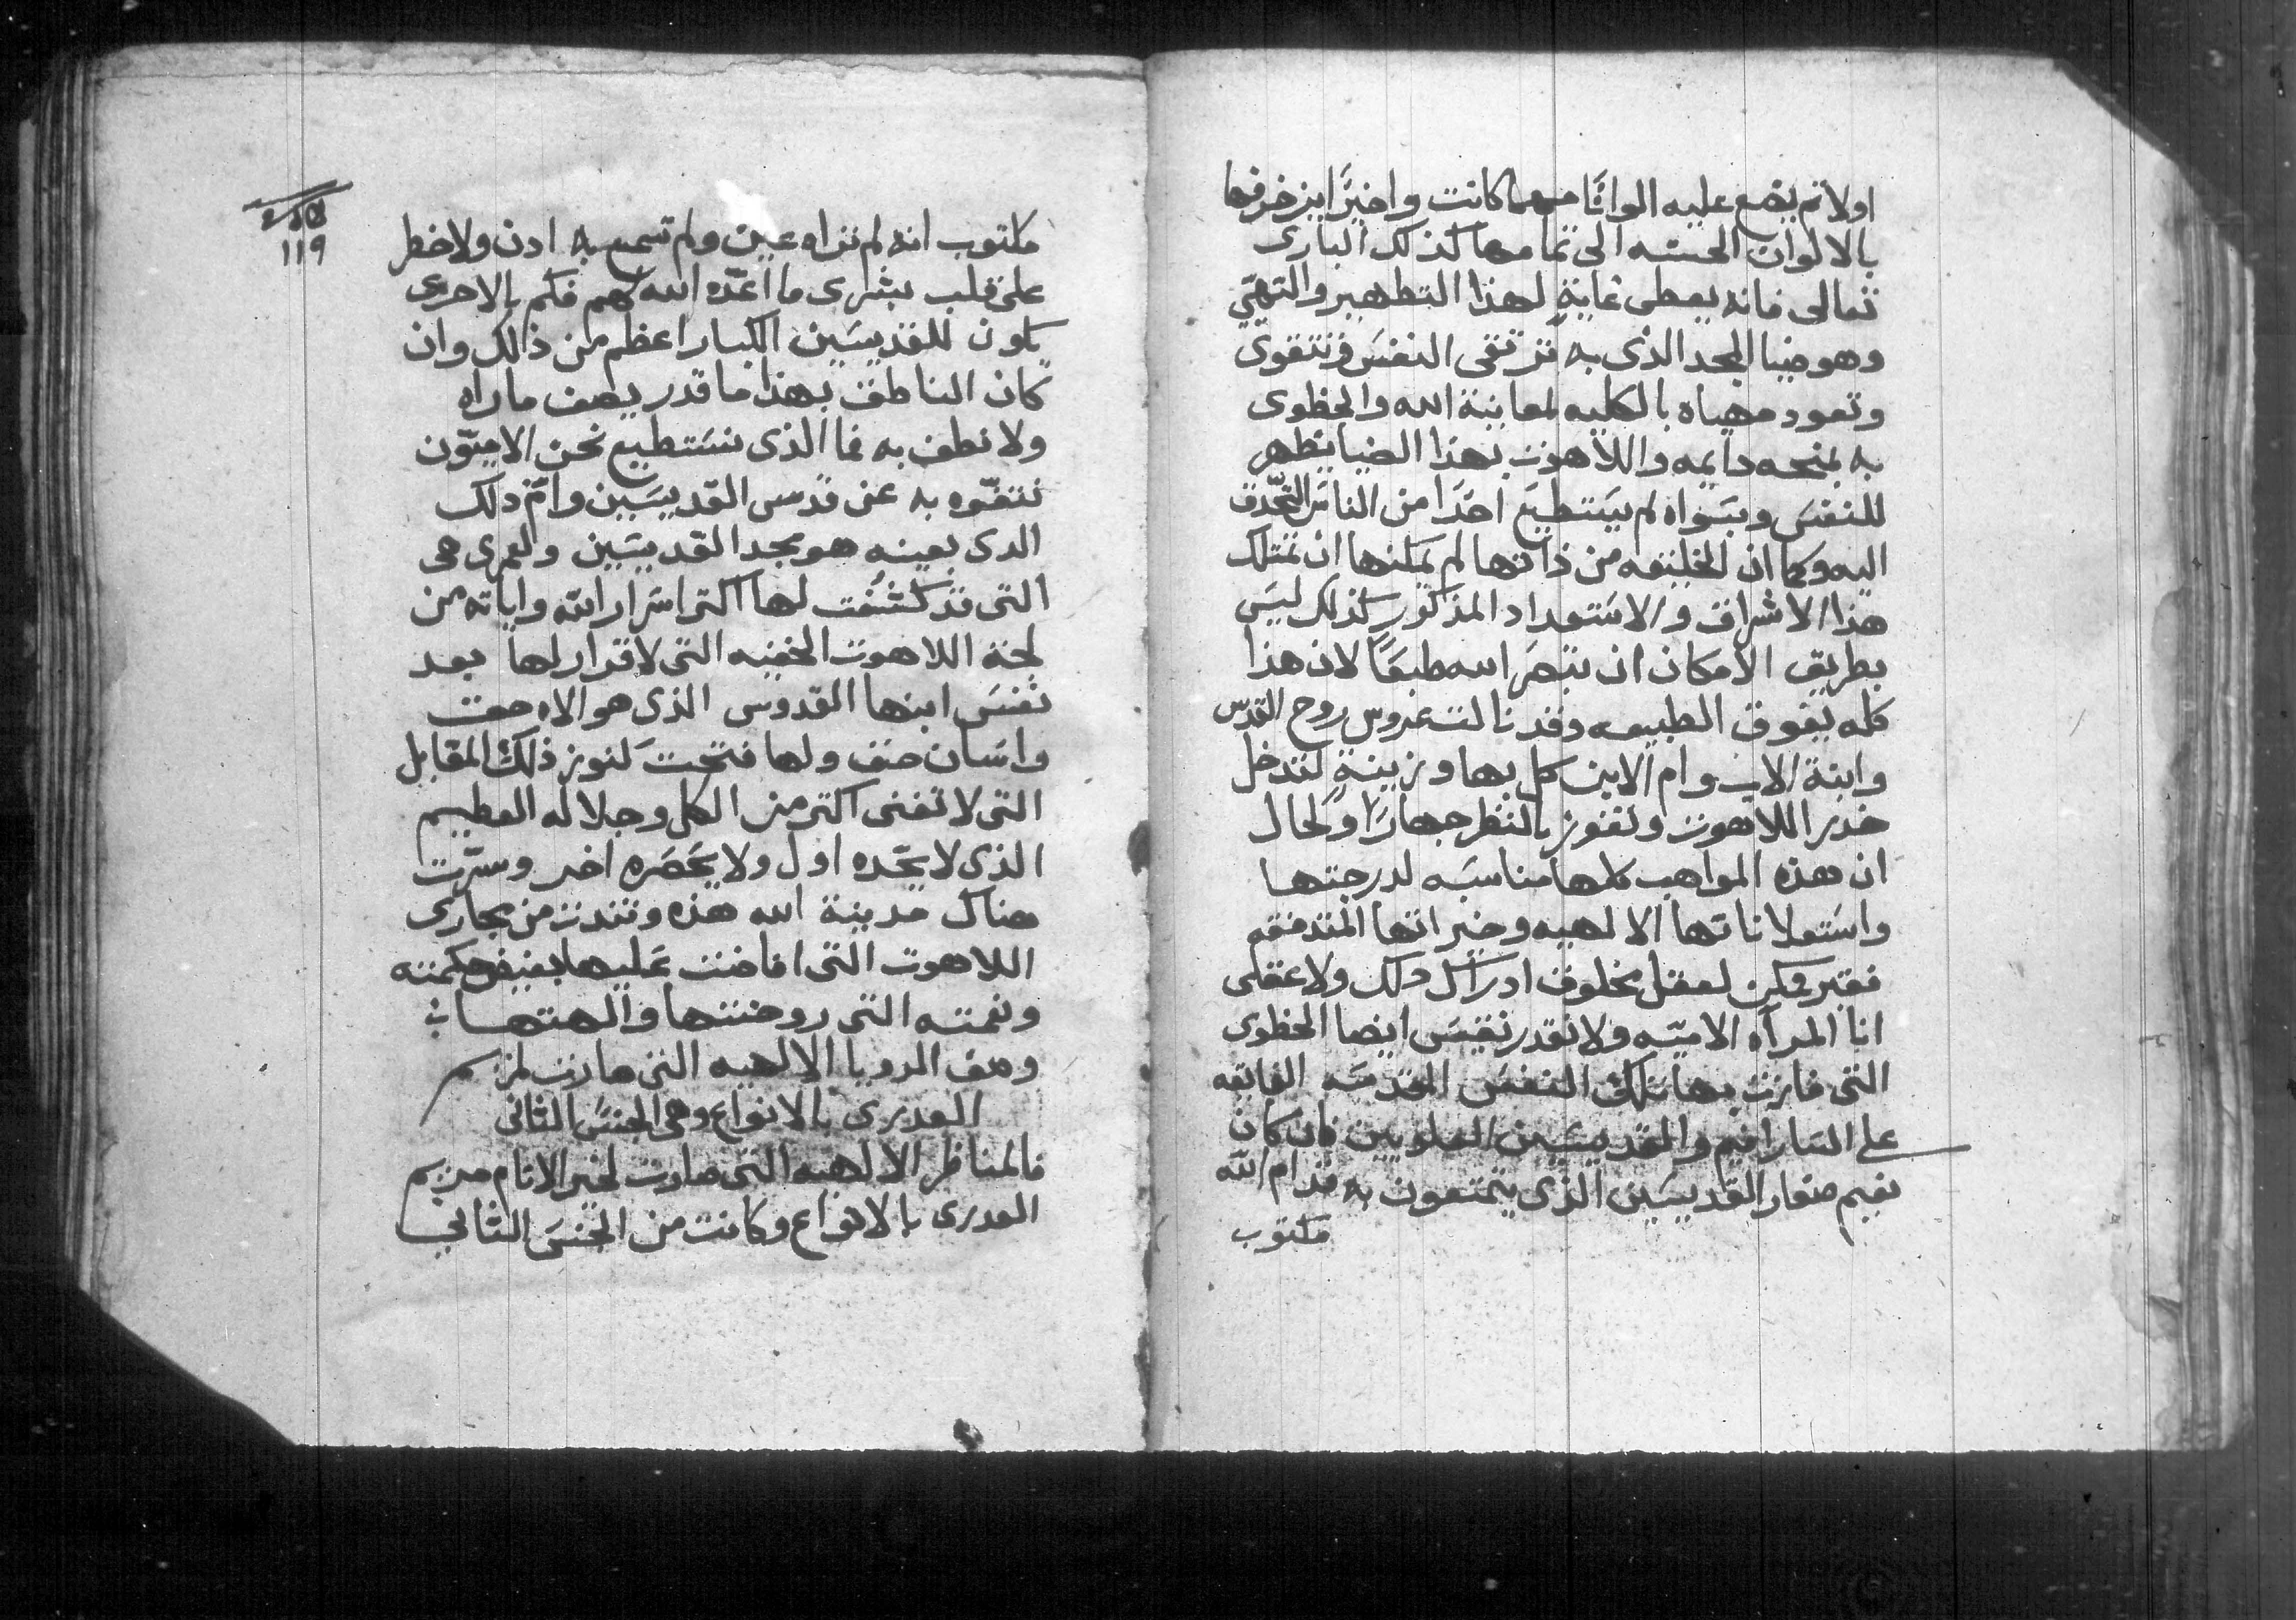 اولا ثم يضع عليه الوانًا مهما كانت واخيرًا يزخرفها
بالالوان الحسنه الى تمامها كذلك البارى
تعالى فانه يعطى غاية لهذا التطهير والتهيّى
وهو ضيا المجد الذى به ترتقى النفس وتتقوى
وتعود مهياه بالكليه لمعاينة الله والحظوى
به بمنحه دايمه واللاهوت بهذا الضيا يظهر
للنفس وبسواه لم يستطيع احدًا من الناس التحدّق
اليه وكما ان الخليقه من ذاتها لم يمكنها ان تمتلك
هذا الاشراق والاستعداد المذكور كذلك ليس
بطريق الامكان ان تبصر الله طبعًا لان هذا
كله يفوق الطبيعه وقد نالت عروس روح القدس
وابنة الاب وام الابن كل بها وزينة لتدخل
خدر اللاهوت وتفوز بالنظر جهارًا ولحال
ان هذه المواهب كلها مناسبه لدرجتها
واستعلاناتها الالهيه وخيراتها المتدفقه
فغير ممكن لعقل مخلوق ادراك ذلك ولا عقلى
انا المرآه الاميّه ولا نقدر نقيس ايضا الحظوى
التى فازت بها تلك النفس المقدسه الفايقه
على السارافيم والقديسين العلويين فان كان
نعيم صغار القديسين الذى يتمتعون به قدام الله
مكتوب
١١٩
مكتوب انه لم تراه عين ولم تسمع به ادن ولا خطر
على قلب بشرى ما اعدّه الله لهم فكم بالاحرى
يكون للقديسين الكبار اعظم من ذالك وان
كان الناطق بهذا ما قدر يصف ما راه
ولا نطق به فما الذى نستطيع نحن الاميّون
نتفوّه به عن قدس القديسين وامّ ذلك
الدى بعينه هو مجد القديسين ولعمرى هى
التى قد كشفت لها اكتر اسرار الله واياته من
لجة اللاهوت الخفيه التى لا قرار لها بعد
نفس ابنها القدوس الذى هو الاه حق
وانسان حق ولها فتحت كنوز ذلك المقابل
التى لا تفنى اكتر من الكل وجلاله العظيم
الذى لا يحّده اول ولا يحصره اخر وسرّت
هناك مدينة الله هذه وتندت من مجارى
اللاهوت التى افاضت عليها بفيض حكمته
ونعمته التى روحنتها والهتها ؞
وصف الرويا الالهيه التى صارت لمريم
العدرى بالانواع وهى الجنس الثانى
فالمناظر الالهيه التى صارت لخير الانام مريم
العدرى بالانواع وكانت من الجنس الثانى